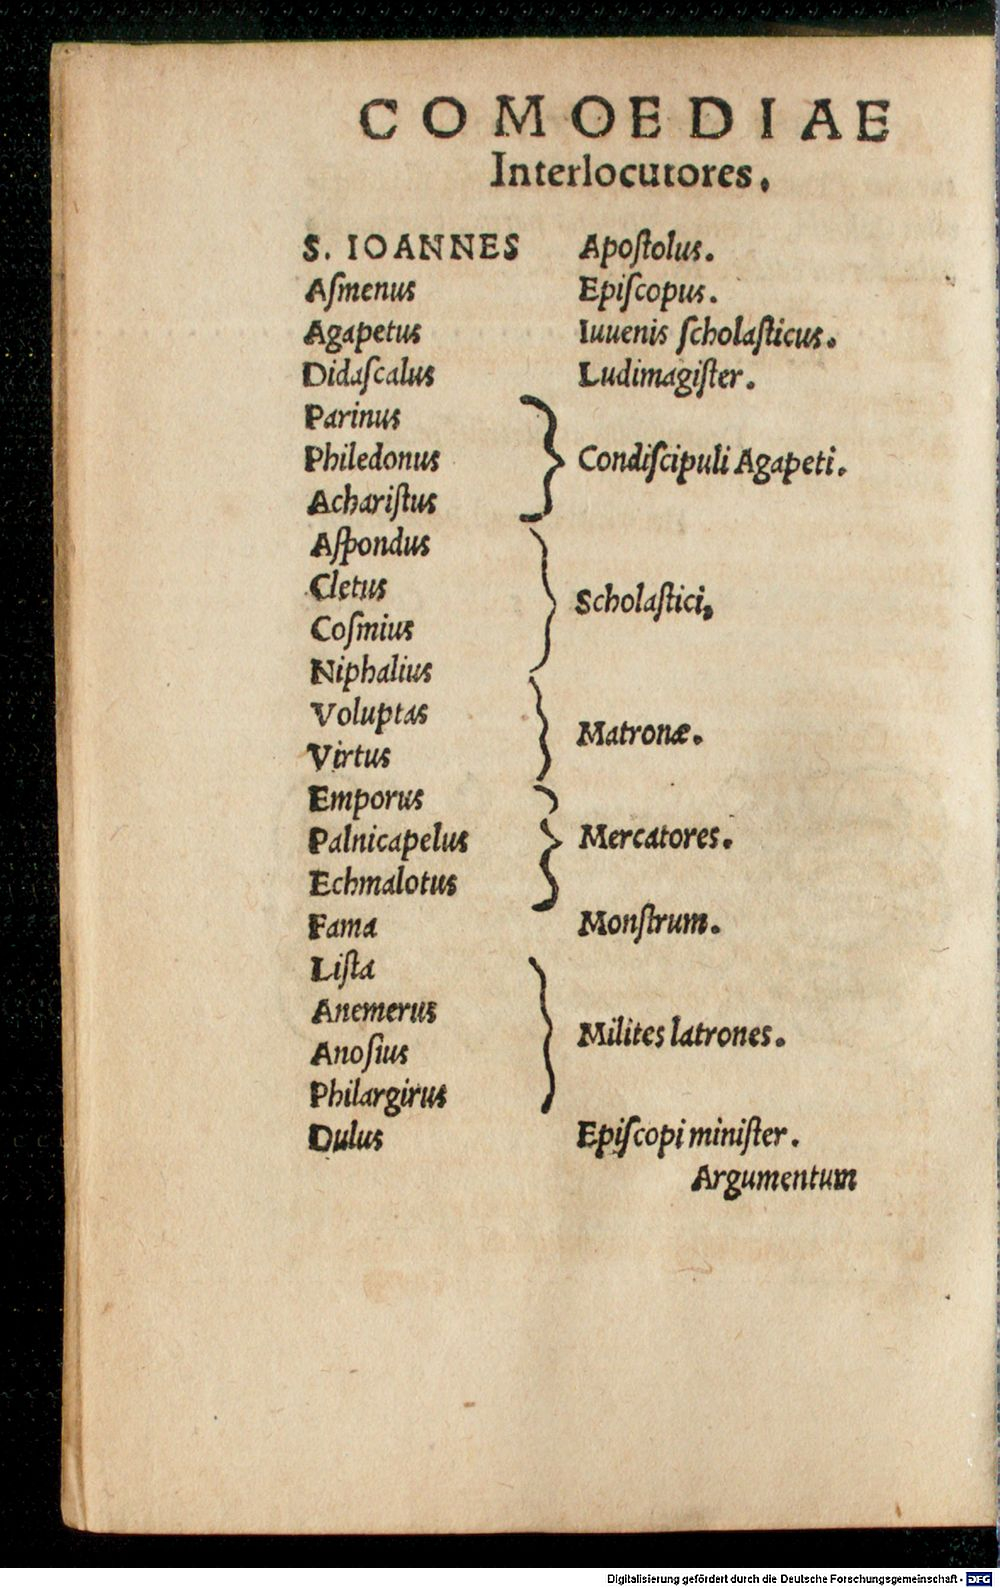 COMOEDIAE
Interlocutores.
S. IOANNES Apoſtolus.
Aſmenus Epiſcopus.
Agapetus Iuuenis ſcholaſticus.
Didaſcalus Ludimagiſter.
Parinus
Philedonus Condiſcipuli Agapeti.
Achariſtus
Aſpondus
Cletus Scholaſtici,
Coſmius
Niphalius
Voluptas Matronæ.
Virtus
Emporus
Palnicapelus Mercatores.
Echmalotus
Fama Monſtrum.
Liſta
Anemerus Milites latrones.
Anoſius
Philargirus
Dulus Epiſcopi miniſter.
Argumentum
Digitalisierung gefördert durch die Deutsche Forschungsgemeinschaft - DFG